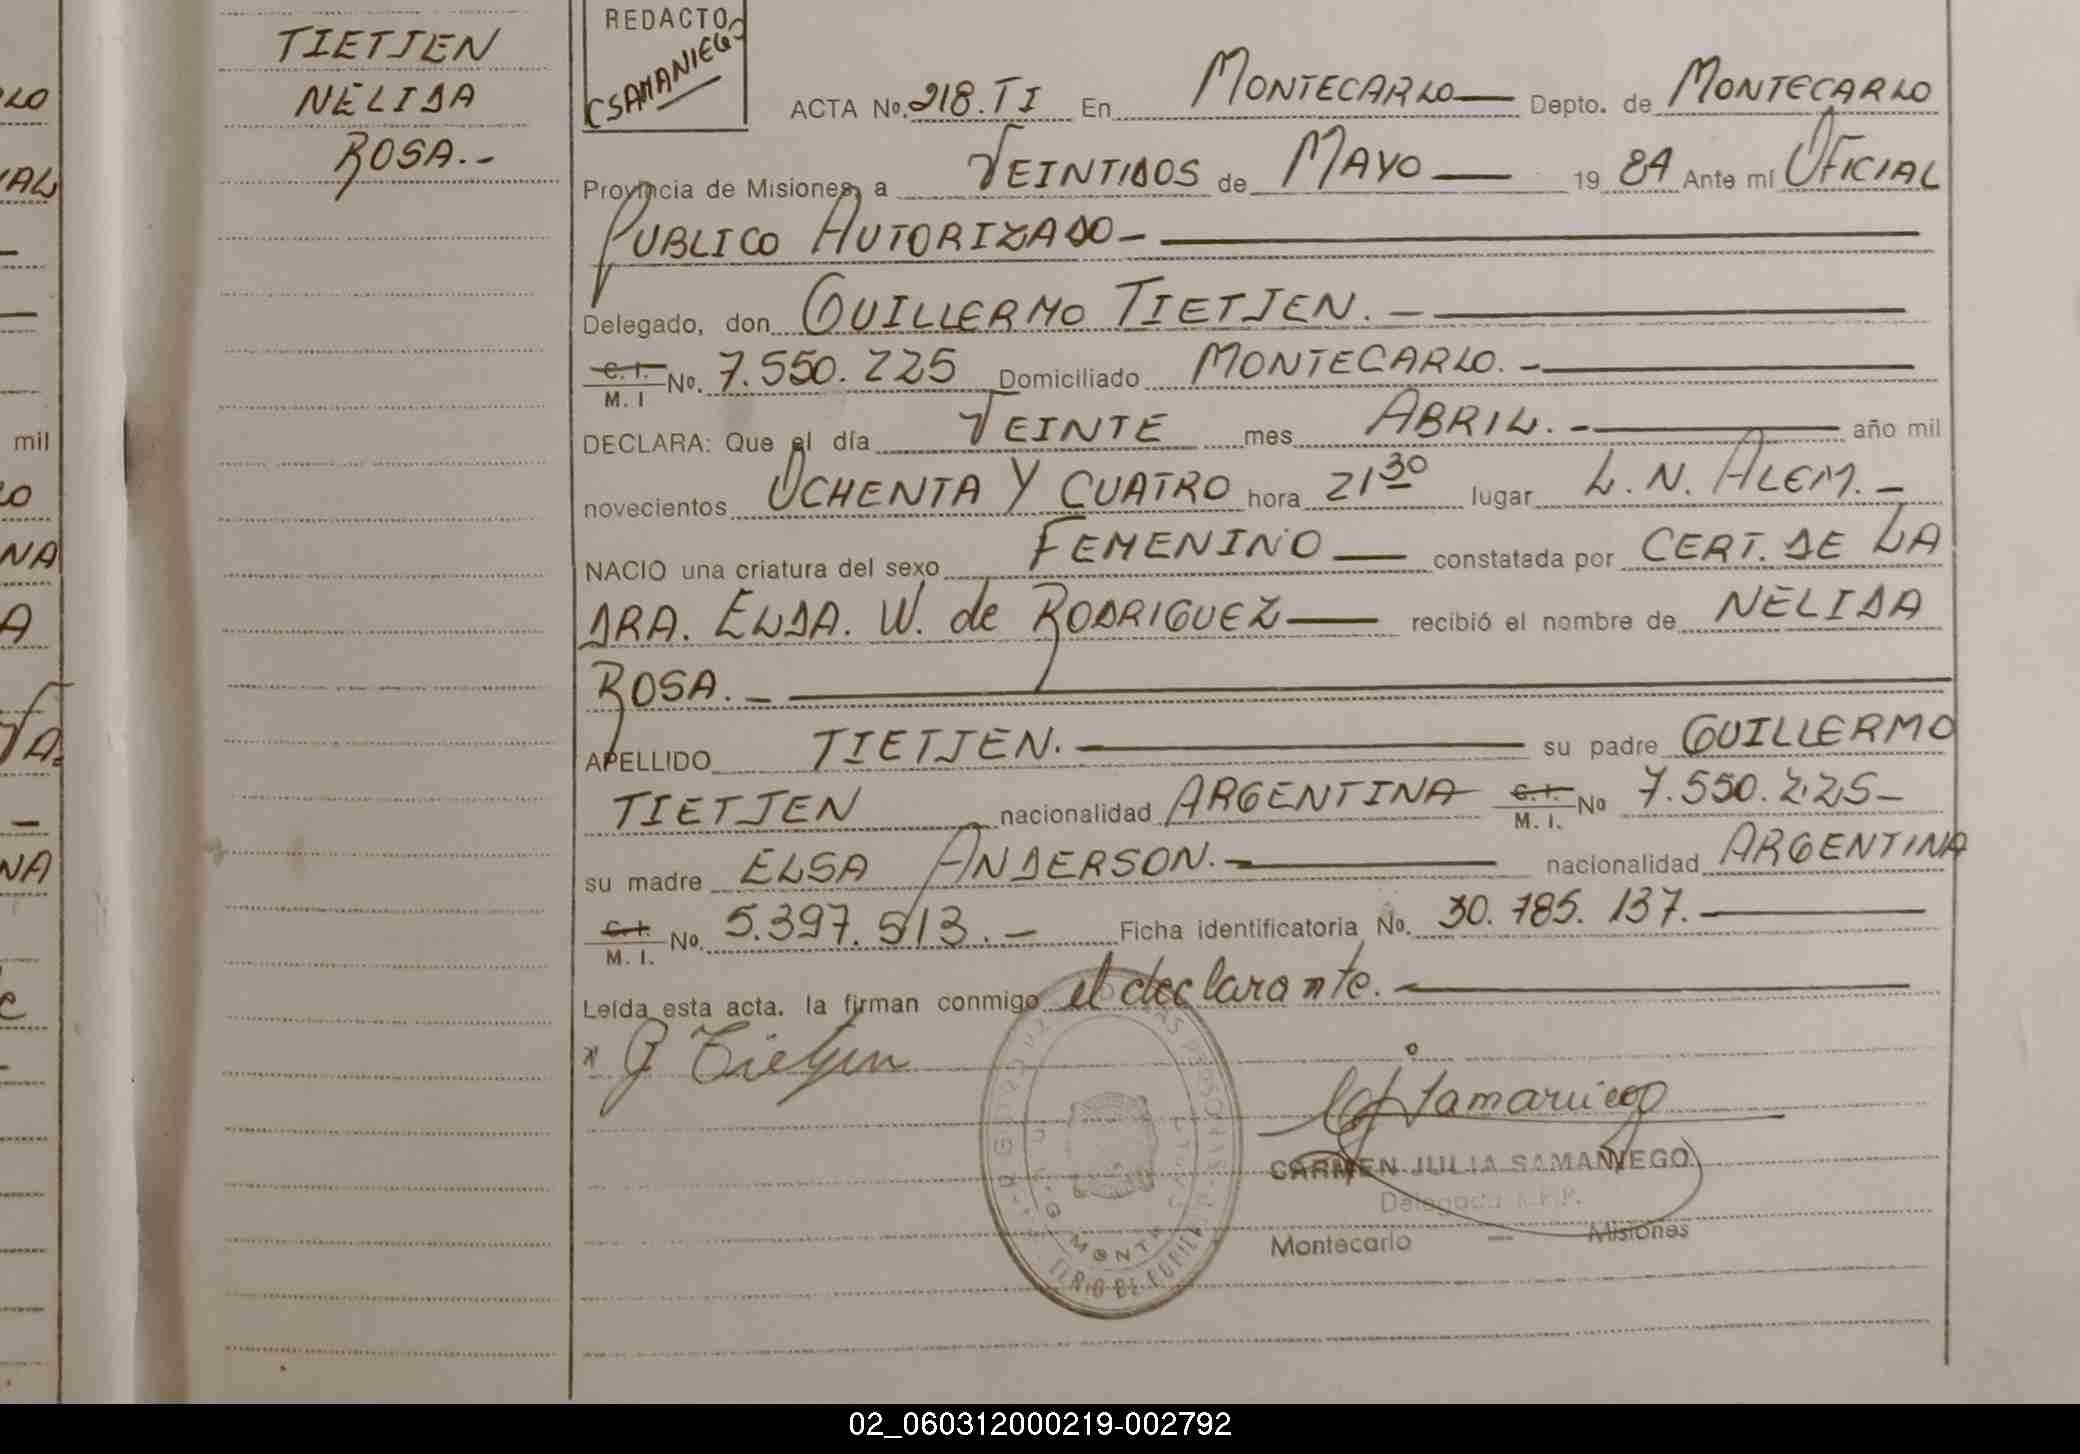 TIETJEN
NELIDA
ROSA.-
REDACTO
CSAMANIEGO
ACTA No. 218. TI En MONTECARLO Depto. de MONTECARLO
Provincia de Misiones, a VEINTIDOS de MAYO 19 84 Ante mí OFICIAL
PUBLICO AUTORIZADO -
Delegado, don GUILLERMO TIETJEN. -
C. I. / M. I No. 7.550.225 Domiciliado MONTECARLO. -
DECLARA: Que el día VEINTE mes ABRIL. - año mil
novecientos OCHENTA Y CUATRO hora 21 30 lugar L. N. ALEM. -
NACIO una criatura del sexo FEMENINO constatada por CERT. DE LA
DRA. ELDA. W. de RODRIGUEZ recibió el nombre de NELIDA
ROSA. -
APELLIDO TIETJEN. su padre GUILLERMO
TIETJEN nacionalidad ARGENTINA C. I. / M. I. No 7.550.225-
su madre ELSA ANDERSON. - nacionalidad ARGENTINA
C. I. / M. I. No. 5.397.513. - Ficha identificatoria No. 30.785.137.
Leída esta acta, la firman conmigo el declarante.
G Tietjen
CJSamaniego
CARMEN JULIA SAMANIEGO
Delegada R.P.P.
Montecarlo — Misiones
mil
02_060312000219-002792